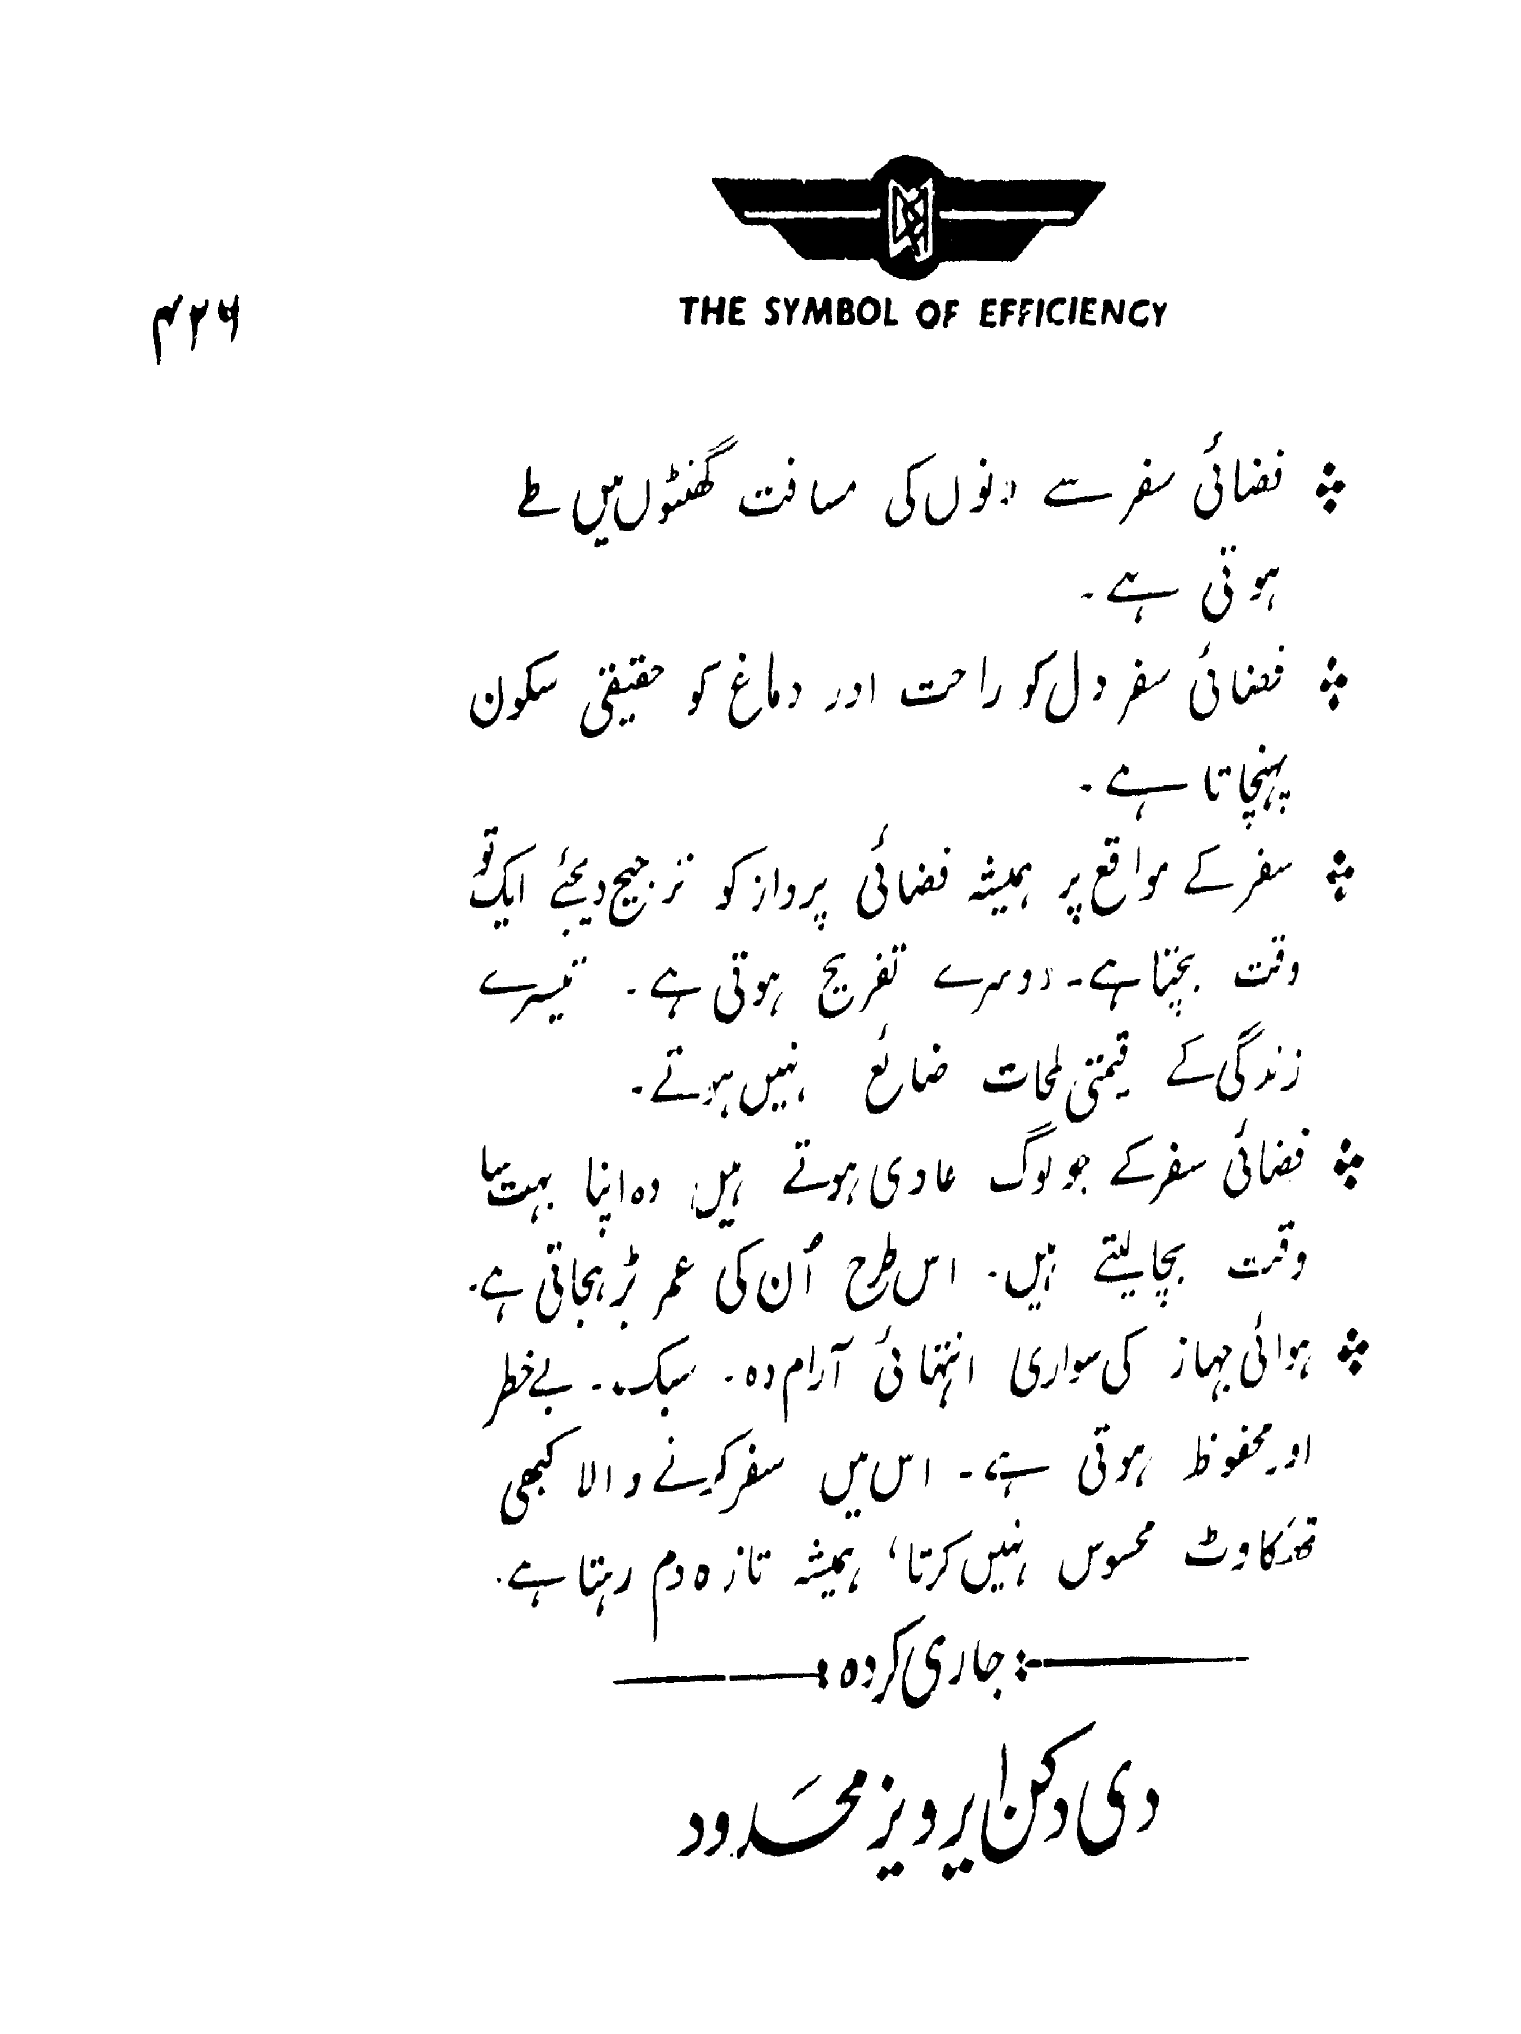 THE SYMBOL OF EFFICIENCY
۴۲۶
فضائی سفر سے دنوں کی مسافت گھنٹوں میں طے
ہوتی ہے۔
فضائی سفر دل کو راحت اور دماغ کو حقیقی سکون
پہنچاتا ہے۔
سفر کے مواقع پر ہمیشہ فضائی پرواز کو ترجیح دیجئے ایک تو
وقت بچتا ہے۔ دوسرے تفریح ہوتی ہے۔ تیسرے
زندگی کے قیمتی لمحات ضائع نہیں ہوتے۔
فضائی سفر کے جو لوگ عادی ہوتے ہیں وہ اپنا بہت سا
وقت بچا لیتے ہیں۔ اس طرح اُن کی عمر بڑہجاتی ہے۔
ہوائی جہاز کی سواری انتہائی آرام دہ۔ سبک۔ بے خطر
اور محفوظ ہوتی ہے۔ اس میں سفر کرنے والا کبھی
تھکاوٹ محسوس نہیں کرتا، ہمیشہ تازہ دم رہتا ہے۔
جاری کردہ
دی دکن ایرویز محدود